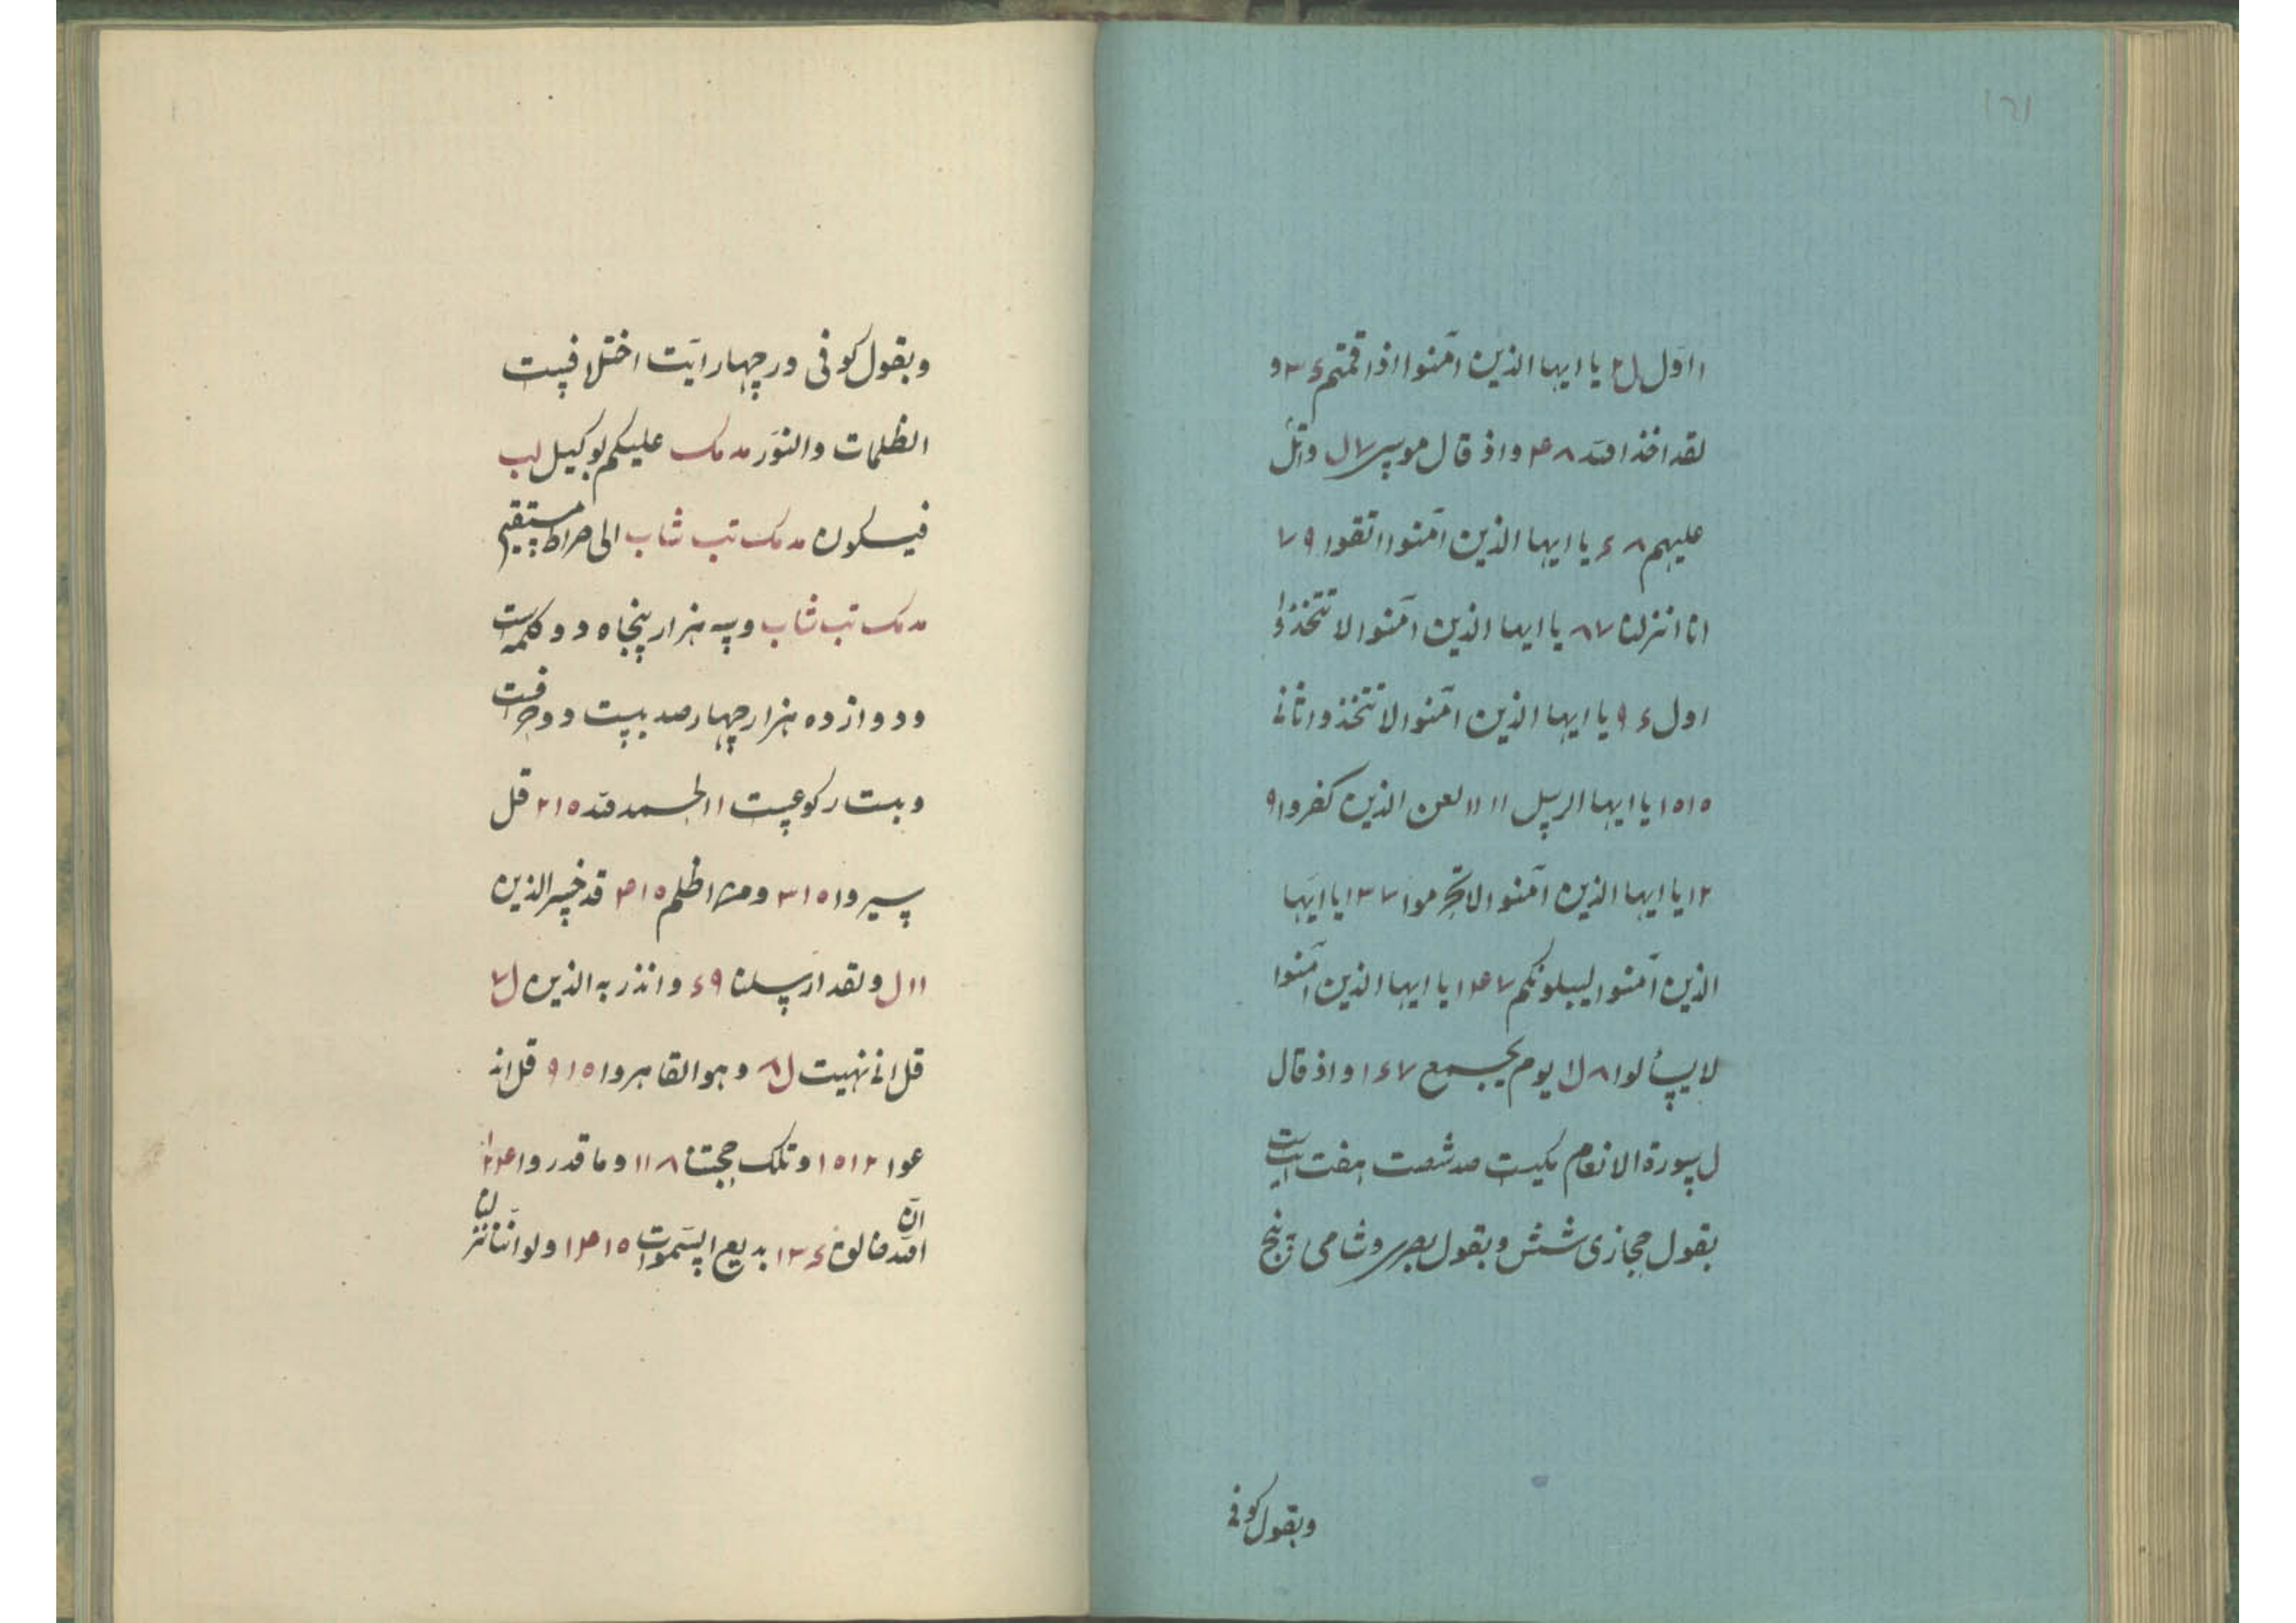 ۱۲۱
ا اول ل۲ یا ایها الذین آمنوا اذا قمتم ۳۶ و
لقد اخذ الله ۴۸ و اذ قال موسی ۷ل واتل
علیهم ۸۶ یا ایها الذین آمنوا اتقوا ۷۹
انا انزلنا ۸۷ یا ایها الذین آمنوا لا تتخذوا
اول ۹۶ یا ایها الذین آمنوا لا تتخذوا ثانی
۱۰۱۵ یا ایها الرسل ۱۱۱۱ لعن الذین کفروا ۹
۱۲ یا ایها الذین آمنوا لا تحرموا ۱۳۷ یا ایها
الذین آمنوا لیبلونکم ۱۴۷ یا ایها الذین آمنوا
لا یسألوا ۸ل۱ یوم یجمع ۱۶۷ و اذ قال
ل سورة الانعام مکیست صد شصت هفت آیت
بقول حجازی شش و بقول بصری و شامی و پنج
و بقول کوفی
و بقول کوفی در چهار آیت اختلافیست
الظلمات والنور مد مک علیکم بوکیل لب
فیکون مد مک تب شاب الی صراط مستقیم
مد مک تب شاب و سه هزار پنجاه دو کلمه است
و دوازده هزار چهار صد بیست دو حرفست
و بست رکوعیست ۱۱ الحمد لله ۲۱۵ قل
سیروا ۳۱۵ و من اظلم ۴۱۵ قد خسر الذین
۱۱ل و لقد ارسلنا ۶۹ و انذر به الذین ل۷
قل انی نهیت ل۸ و هو القاهر و ۹۱۵ قل اند
عوا ۱۰۱۲ و تلک حجتنا ۱۱۸ و ما قدروا ۱۲۴
ان الله فالق ۱۳۶ بدیع السموات ۱۴۱۵ و لو اننا نزلنا